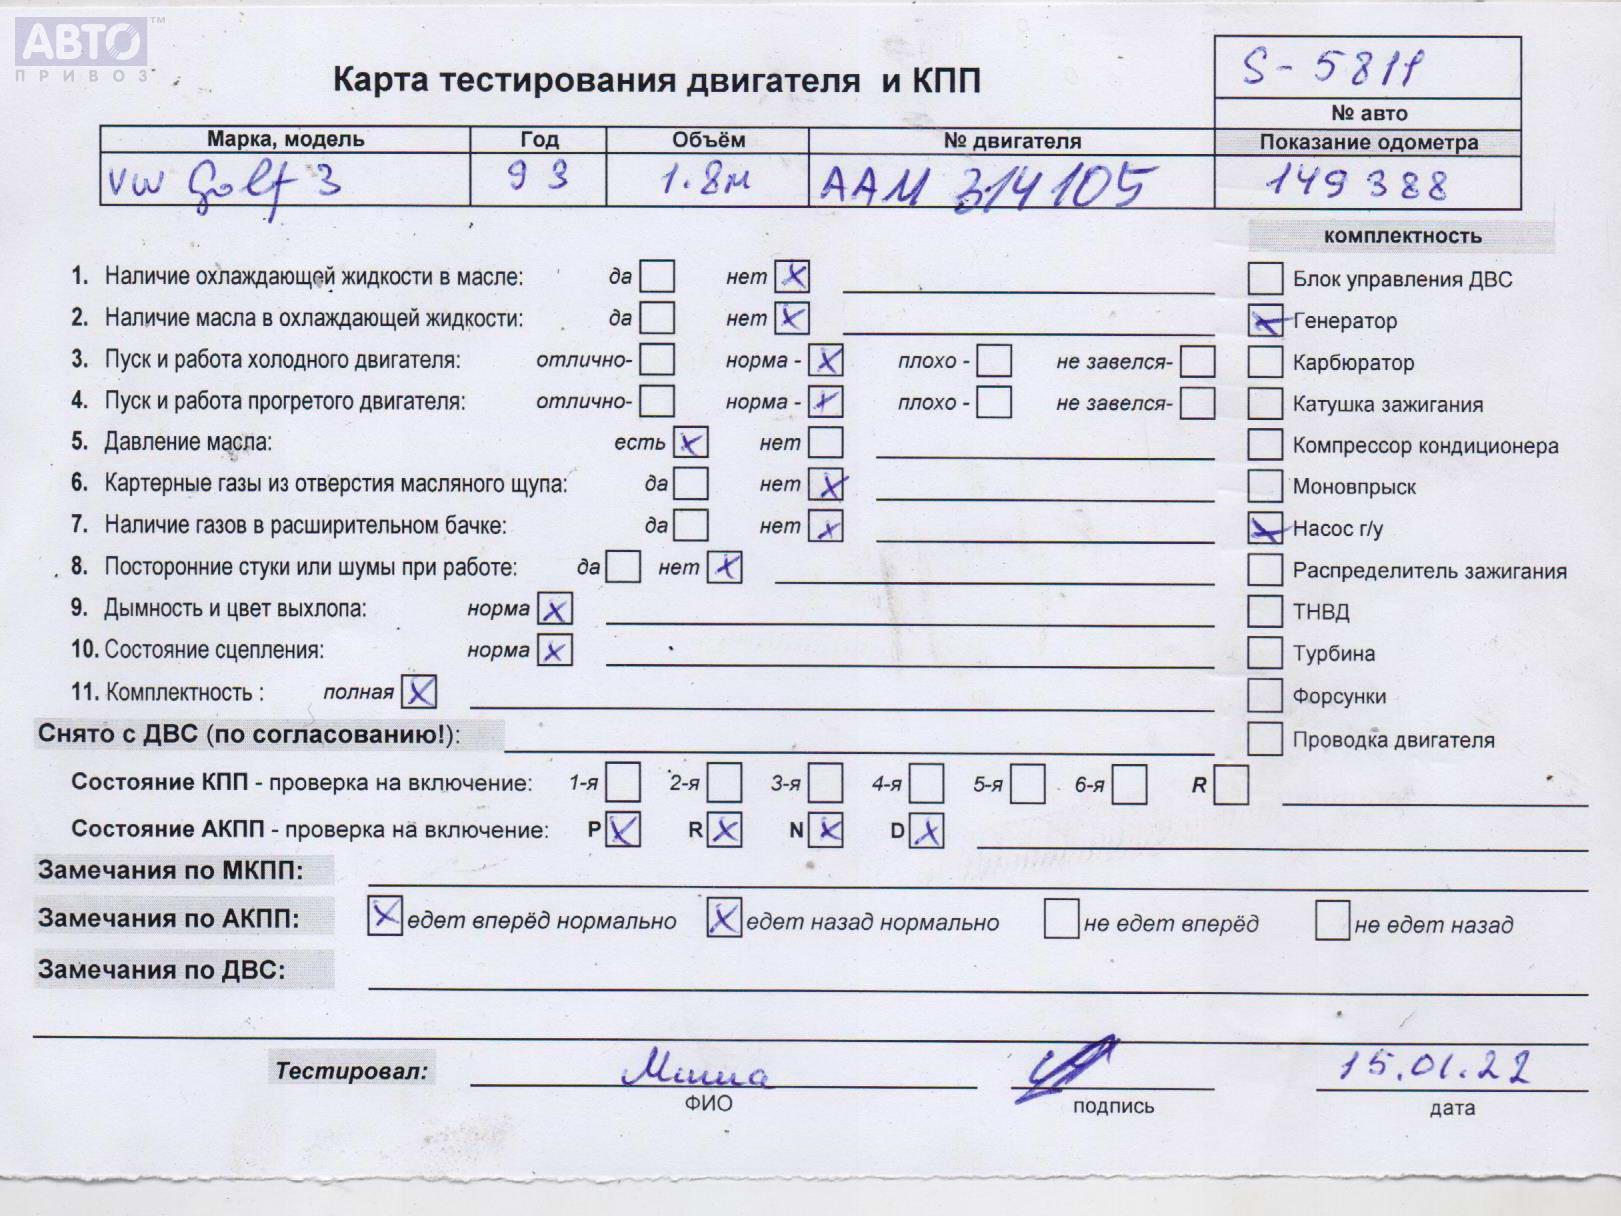 АВТО™
ПРИВОЗ
Карта тестирования двигателя и КПП
S-5811
№ авто
Марка, модель Год Объём № двигателя Показание одометра
VW Golf 3 93 1.8м AAM 314105 149388
комплектность
1. Наличие охлаждающей жидкости в масле: да нет x
2. Наличие масла в охлаждающей жидкости: да нет x
3. Пуск и работа холодного двигателя: отлично- норма - x плохо - не завелся-
4. Пуск и работа прогретого двигателя: отлично- норма - x плохо - не завелся-
5. Давление масла: есть x нет
6. Картерные газы из отверстия масляного щупа: да нет x
7. Наличие газов в расширительном бачке: да нет x
8. Посторонние стуки или шумы при работе: да нет x
9. Дымность и цвет выхлопа: норма x
10. Состояние сцепления: норма x
11. Комплектность : полная x
Блок управления ДВС
x Генератор
Карбюратор
Катушка зажигания
Компрессор кондиционера
Моновпрыск
x Насос г/у
Распределитель зажигания
ТНВД
Турбина
Форсунки
Проводка двигателя
Снято с ДВС (по согласованию!):
Состояние КПП - проверка на включение: 1-я 2-я 3-я 4-я 5-я 6-я R
Состояние АКПП - проверка на включение: P x R x N x D x
Замечания по МКПП:
Замечания по АКПП: x едет вперёд нормально x едет назад нормально не едет вперёд не едет назад
Замечания по ДВС:
Тестировал: Миша 15.01.22
ФИО подпись дата